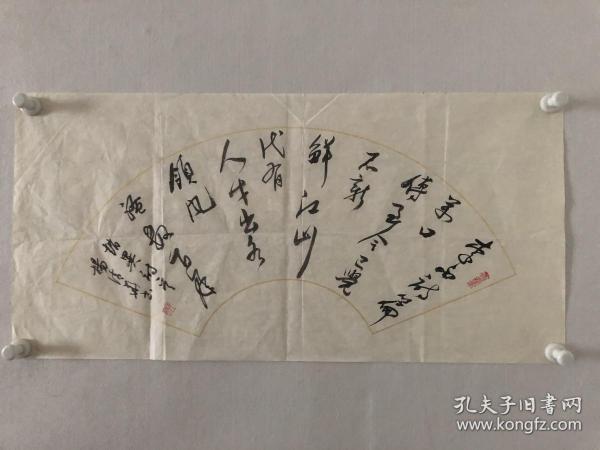 李杜诗篇
万口
傳至今已覺
不新
鲜江山
代有
人才出各
领风
骚数百年
赵翼论诗
孔夫子旧书网
www.kongfz.com